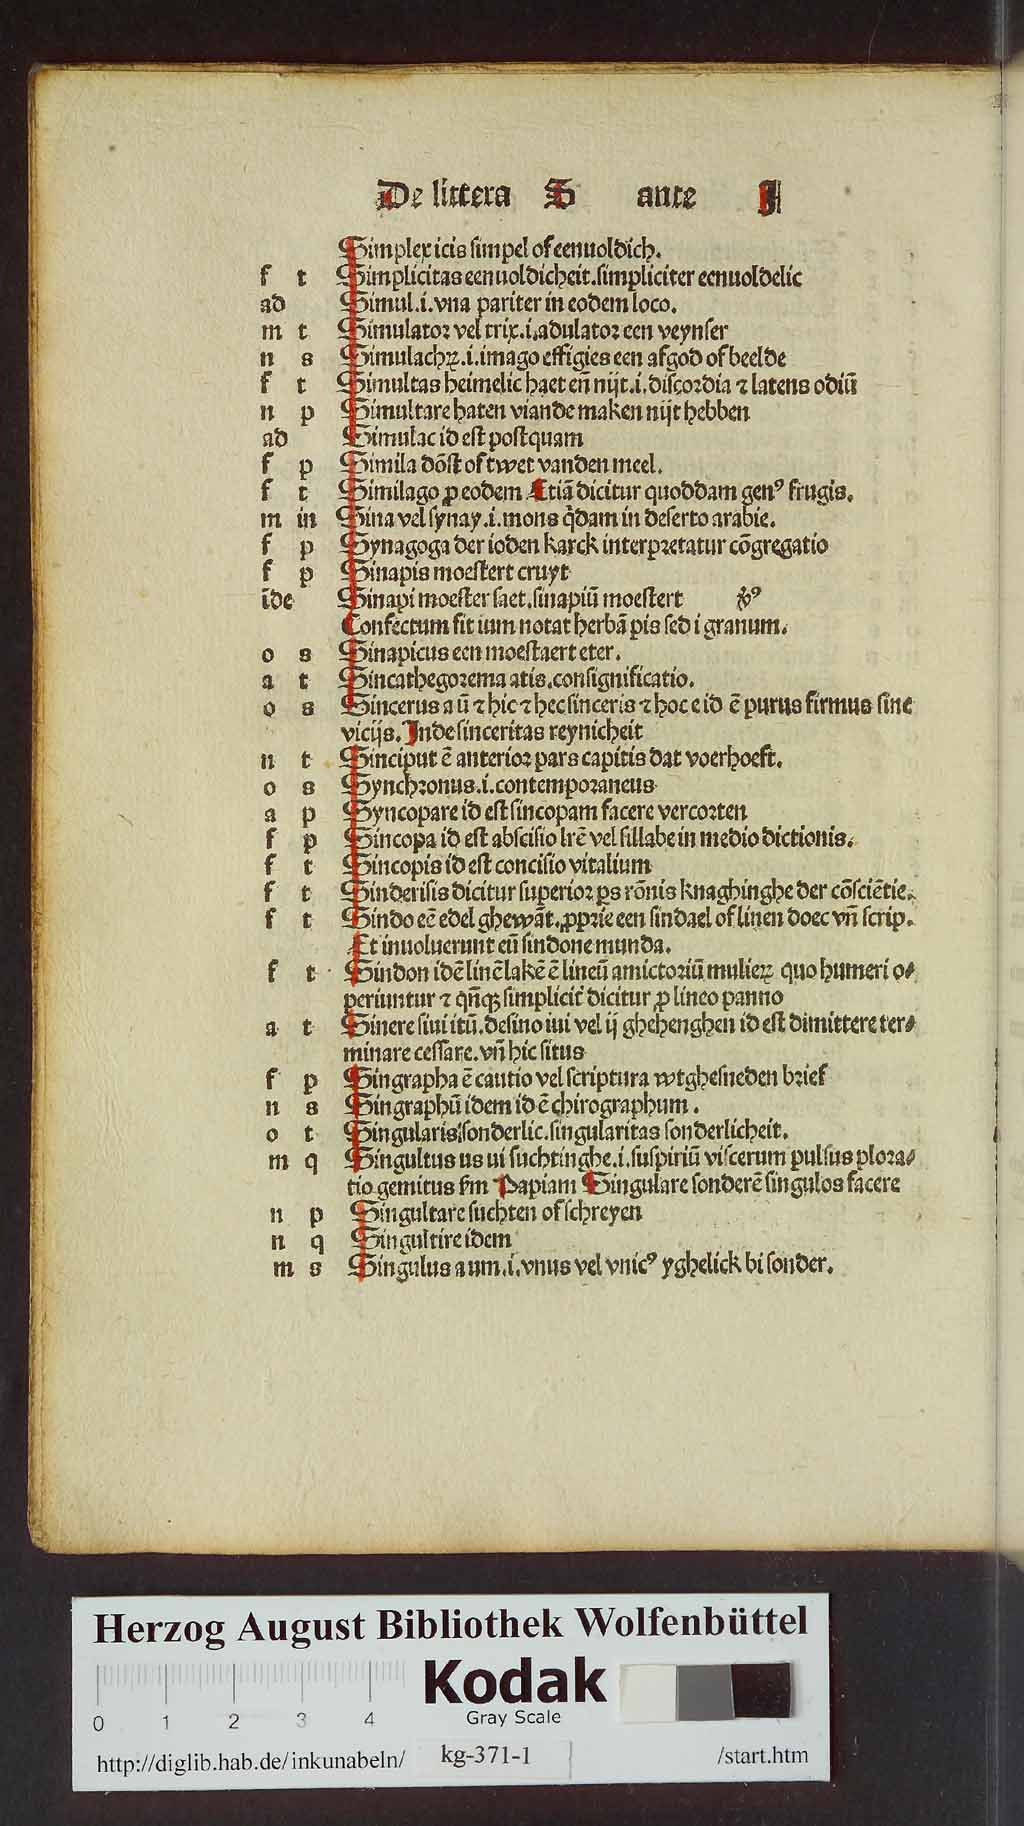 De littera S ante I
Simplex icis simpel of eenuoldich.
f t Simplicitas eenuoldicheit.simpliciter eenuoldelic
ad Simul.i.vna pariter in eodem loco.
m t Simulator vel trix.i.adulator een veynser
n s Simulachꝝ.i.imago effigies een afgod of beelde
f t Simultas heimelic haet en̄ nijt.i.discordia ⁊ latens odiū
n p Simultare haten viande maken nijt hebben
ad Simulac id est postquam
f p Simila dōst of twet vanden meel.
f t Similago ꝓ eodem Etiā dicitur quoddam genꝰ frugis.
m in Sina vel synay.i.mons q̇dam in deserto arabie.
f p Synagoga der ioden karck interpretatur cōgregatio
f p Sinapis moestert cruyt
īde Sinapi moester saet.sinapiū moestert ꝟꝰ
Confectum fit ium notat herbā pis sed i granum.
o s Sinapicus een moestaert eter.
a t Sincathegorema atis.consignificatio.
o s Sincerus a ū ⁊ hic ⁊ hec sinceris ⁊ hoc e id ē purus firmus sine
vicijs. Inde sinceritas reynicheit
n t Sinciput ē anterior pars capitis dat voerhoeft.
o s Synchronus.i.contemporaneus
a p Syncopare id est sincopam facere vercorten
f p Sincopa id est abscisio lrē vel sillabe in medio dictionis.
f t Sincopis id est concisio vitalium
f t Sinderisis dicitur superior ps rōnis knaghinghe der cōsciētie.
f t Sindo eē edel ghewāt.ꝓprie een sindael of linen doec vn̄ scrip.
Et inuoluerunt eū sindone munda.
f t Sindon idē linē lakē ē lineū amictoriū mulieꝝ quo humeri o⸗
periuntur ⁊ qn̄qꝫ simplicit᷑ dicitur ꝓ lineo panno
a t Sinere siui itū.desino iui vel ij ghehenghen id est dimittere ter⸗
minare cessare.vn̄ hic situs
f p Singrapha ē cautio vel scriptura wtghesneden brief
n s Singraphū idem id ē chirographum.
o t Singularis sonderlic.singularitas sonderlicheit.
m q Singultus us ui suchtinghe.i.suspiriū viscerum pulsus plora⸗
tio gemitus ẜm Papiam Singulare sonderē singulos facere
n p Singultare suchten of schreyen
n q Singultire idem
m s Singulus a um.i.vnus vel vnicꝰ yghelick bi sonder.
Herzog August Bibliothek Wolfenbüttel
Kodak
Gray Scale
0 1 2 3 4
http://diglib.hab.de/inkunabeln/ kg-371-1 /start.htm